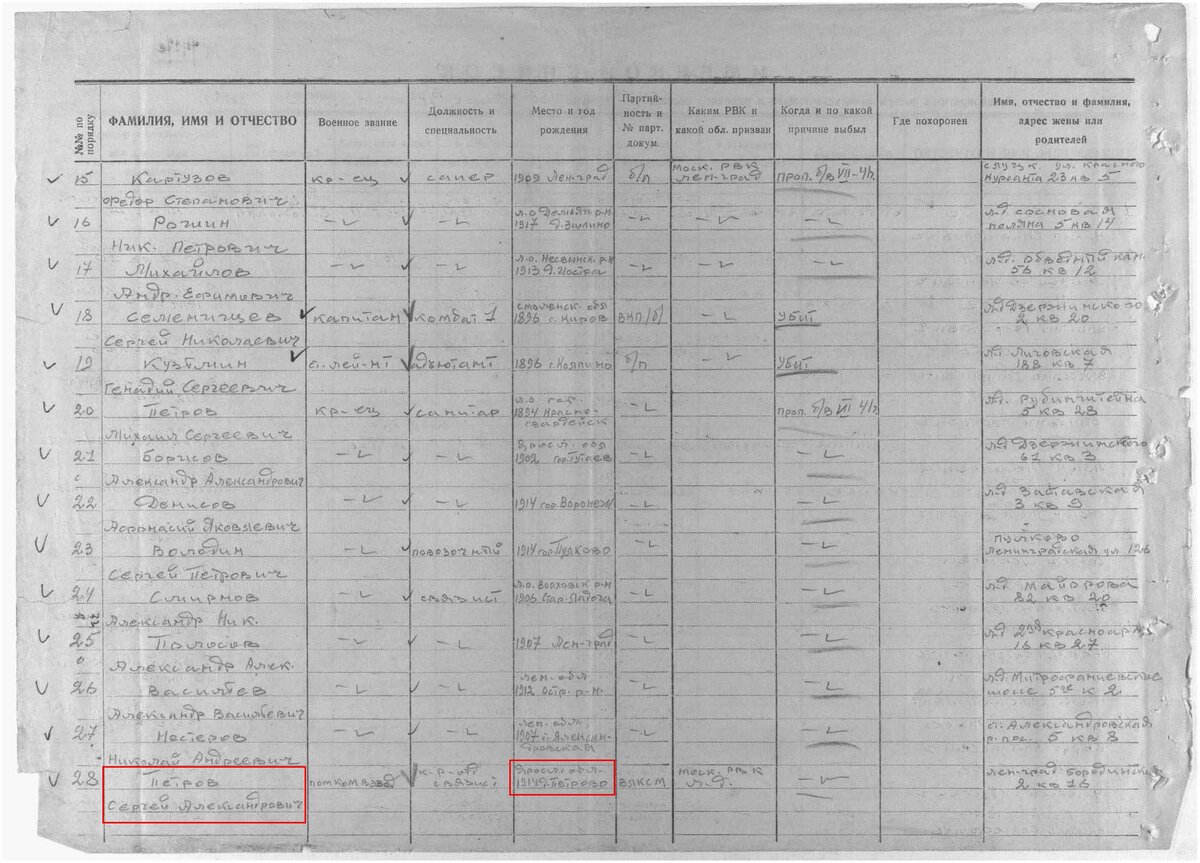 №№ по порядку
ФАМИЛИЯ, ИМЯ И ОТЧЕСТВО
Военное звание
Должность и специальность
Место и год рождения
Партий-ность и № парт. докум.
Каким РВК и какой обл. призван
Когда и по какой причине выбыл
Где похоронен
Имя, отчество и фамилия, адрес жены или родителей
15 Картузов кр-ец сапер 1909 Лен-град б/п Моск. РВК Лен-град проп. б/в VII-41г. Слуцк ул. Красного курсанта 23 кв 5
Федор Степанович
16 Рогшин -"- -"- 1917 -"- -"- -"- л-д Сосновая поляна 5 кв 14
Ник. Петрович
17 Михайлов -"- -"- 1913 -"- -"- -"- л-д. Обводный кан. 56 кв 12
Андр. Ефимович
18 Селенищев капитан комбат 1 Смоленск. обл 1896 г. Киров ВКП/б/ -"- убит л-д Дзержинского 2 кв 20
Сергей Николаевич
19 ст. лей-нт адъютант 1896 г. Колпино б/п -"- убит л-д Лиговская 188 кв 7
Генадий Сергеевич
20 Петров кр-ец санитар 1894 Красно-гвардейск -"- проп. б/в VII 41г. л-д. Рубинштейна 5 кв 28
Михаил Сергеевич
21 Борисов -"- -"- Яросл. обл 1902 гор. Тутаев -"- -"- л-д Дзержинского 61 кв 3
Александр Александрович
22 Денисов -"- -"- 1914 гор Воронеж -"- -"- л-д Заставская 3 кв 9
Афонасий Яковлевич
23 Володин -"- повозочный 1914 гор Пулково -"- -"- Пулково Ленинградская ул 126
Сергей Петрович
24 Смирнов -"- связист л.о. Волховск р-н 1906 Стар. Ладога -"- -"- л-д Майорова 32 кв 20
Александр Ник.
25 Полосов -"- -"- 1907 Лен-град -"- -"- л-д 2я Красноарм 16 кв 27
Александр Алек.
26 Васильев -"- -"- Лен. обл. 1912 Остр. р-н. -"- -"- л-д Митрофаниевское шоссе к 2
Александр Васильевич
27 Нестеров -"- -"- лен. обл. 1907 Алексан-дровская -"- ст. Александровская р. пос. 5 кв 8
Николай Андреевич
28 Петров помкомвзвод к-р отд связист Яросл. обл. 1914 д. Петрово ВЛКСМ Моск. РВК Л.д. -"- Лен-град Бородинская 2 кв 16
Сергей Александрович